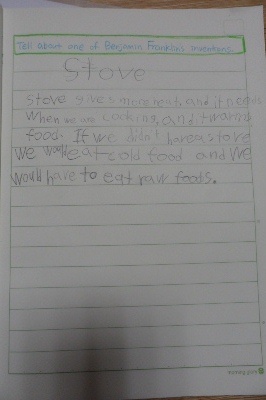 Tell about one of Benjamin Franklin's inventions.
Stove
Stove gives more heat, and it needs
when we are cooking, and it warms
food. If we didn't have a stove
we would eat cold food and we
would have to eat raw foods.